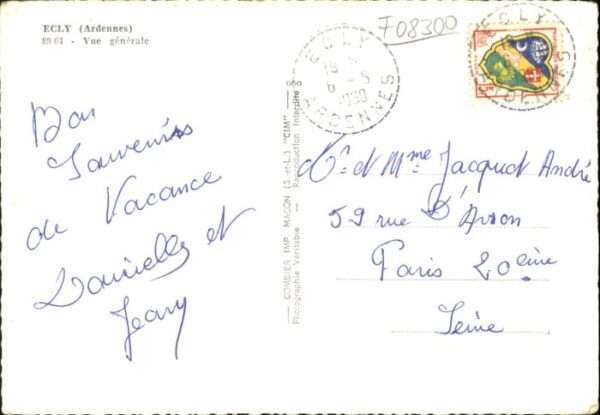 ECLY (Ardennes)
89 61 - Vue générale
F08300
ECLY
1959
ARDENNES
Bon
Souvenirs
de Vacance
Danielle et
Jeany
COMBIER IMP. MACON (S.-et-L.) "CIM"
Photographie Véritable - Reproduction Interdite
Mr et Mme Jacquot André
59 rue d'Avron
Paris 20eme
Seine